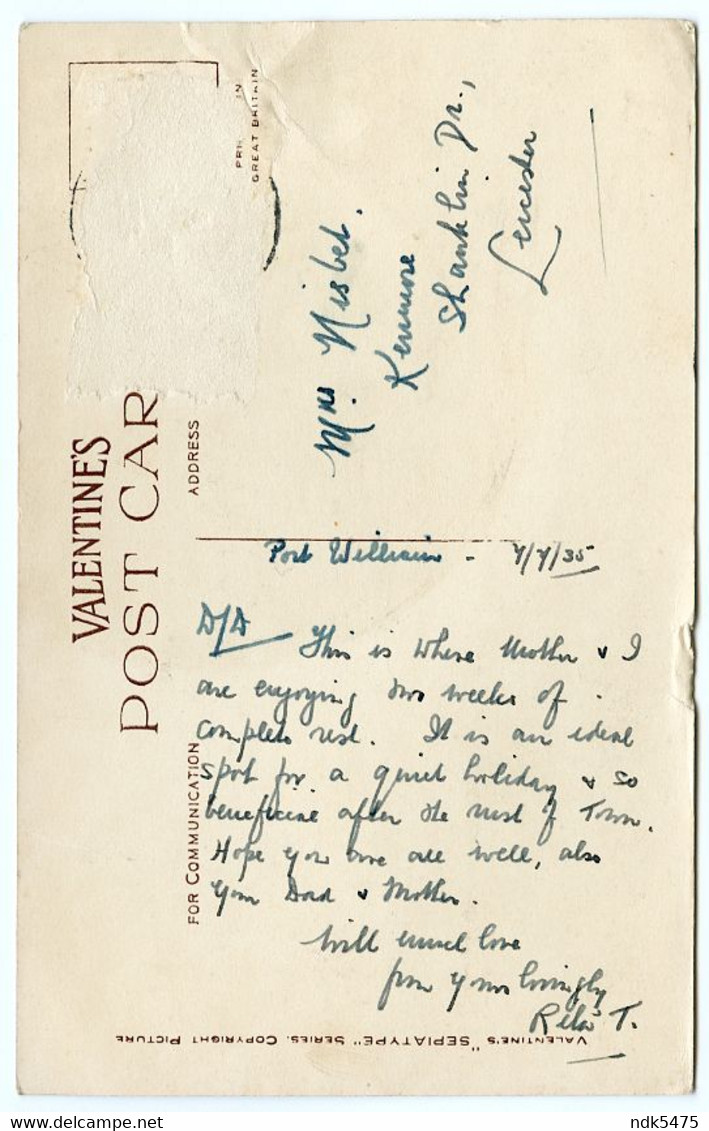 VALENTINE'S
POST CAR
PRI IN
GREAT BRITAIN
ADDRESS
Mrs Nisbet.
Kenmore
Shanklin Dr.,
Leicester
FOR COMMUNICATION
Port William - 7/7/35
D/D This is where Mother & I
are enjoying two weeks of
complete rest. It is an ideal
spot for a quiet holiday & so
beneficial after the rush of Town.
Hope you are all well, also
your Dad & Mother.
With much love
from yours lovingly
Rita T.
VALENTINE'S "SEPIATYPE" SERIES. COPYRIGHT PICTURE
delcampe.net
ndk5475